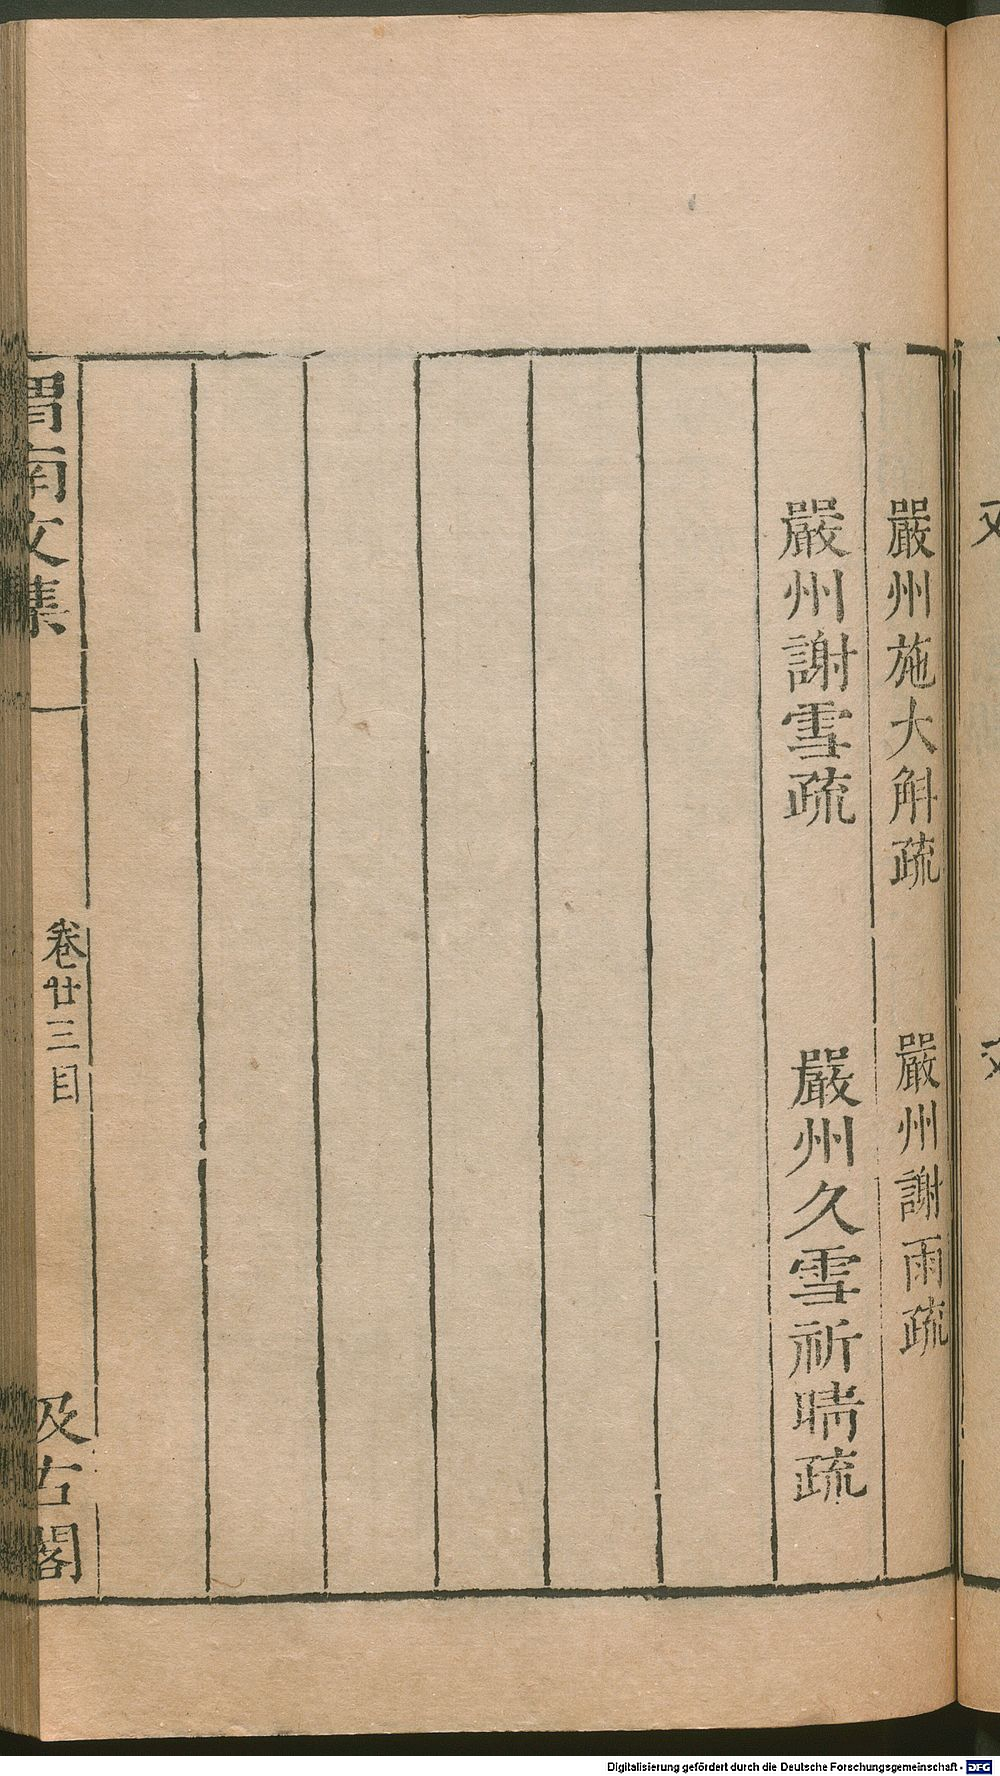 嚴州施大斛疏 嚴州謝雨疏
嚴州謝雪疏 嚴州久雪祈晴疏
渭南文集 卷廿三目 汲古閣
Digitalisierung gefördert durch die Deutsche Forschungsgemeinschaft - DFG